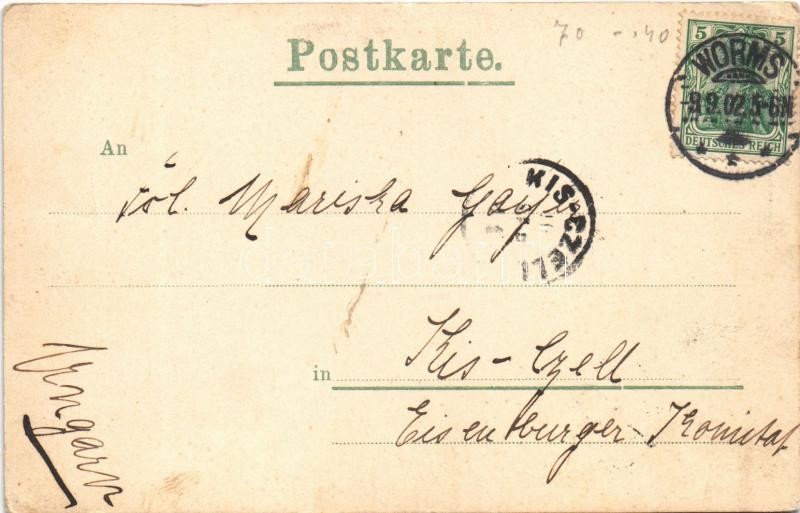 70 - .40
Postkarte.
5 5
WORMS
9.9.02.5-6N
DEUTSCHES REICH
An
Mariska
KIS-CZELL
in Kis-Czell
Eisenburger Komitat
Ungarn
darabanth